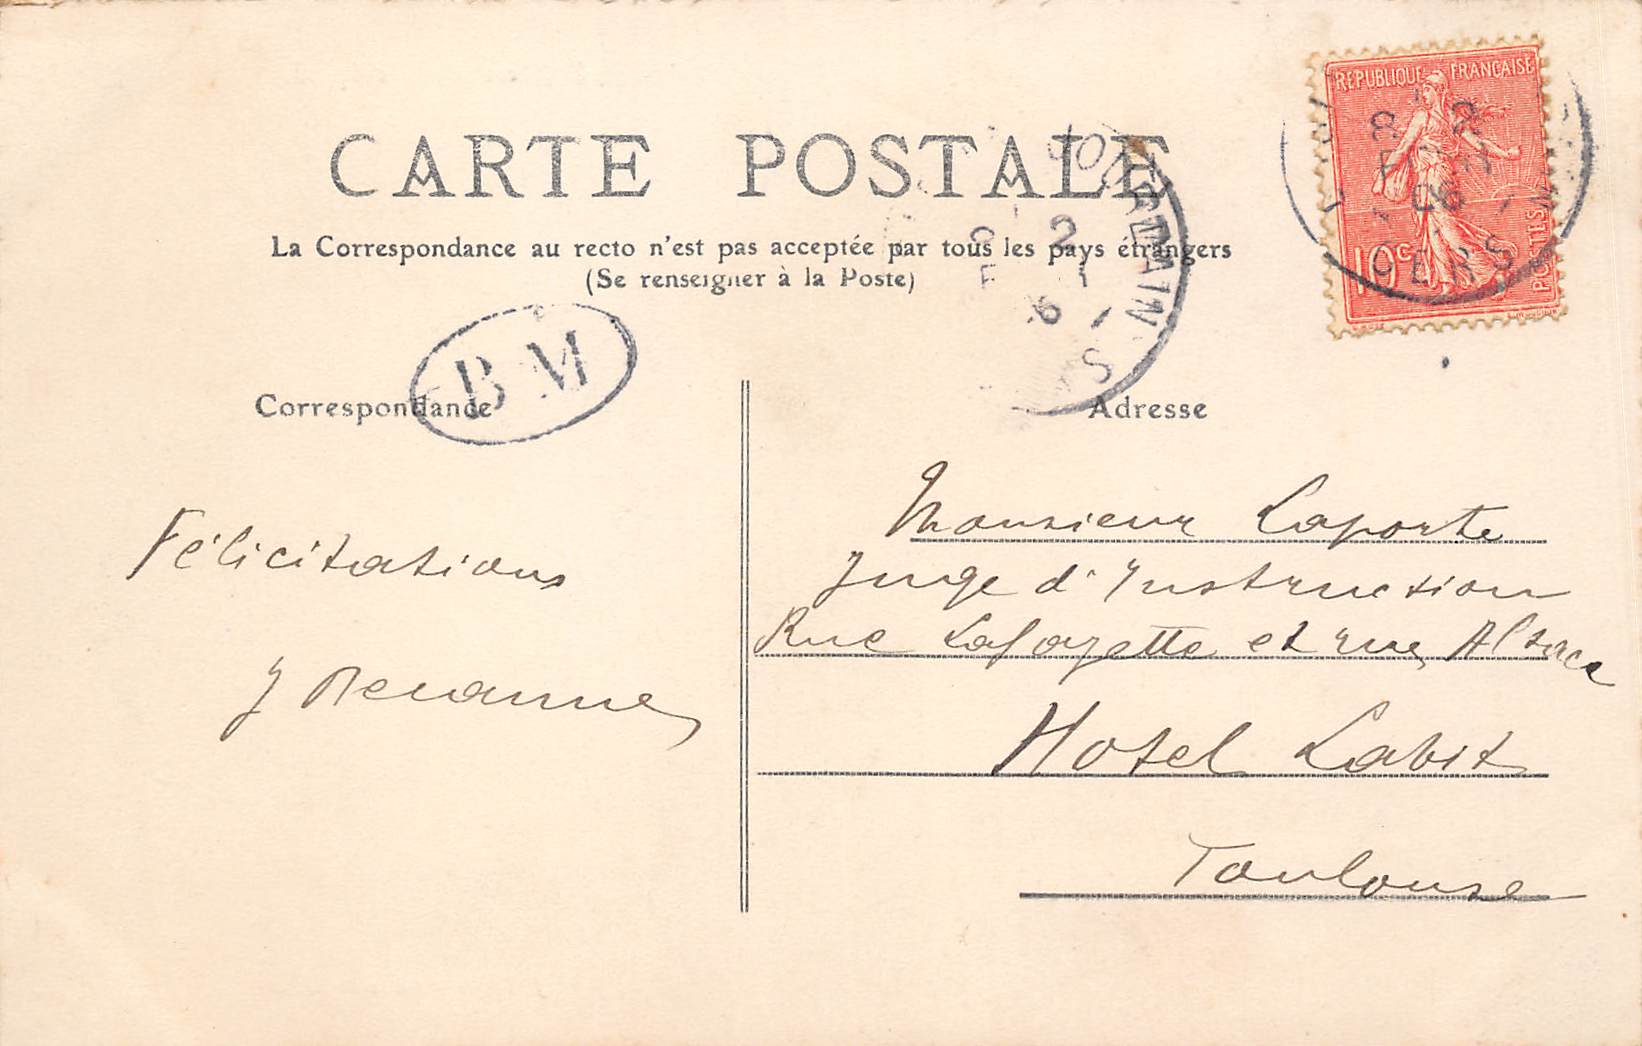 CARTE POSTALE
La Correspondance au recto n'est pas acceptée par tous les pays étrangers
(Se renseigner à la Poste)
REPUBLIQUE FRANÇAISE
10c
POSTES
06
GERS
B M
Correspondance
Félicitations
Adresse
Monsieur Laporte
Juge d'Instruction
Rue Lafayette et rue Alsace
Hotel Labit
Toulouse